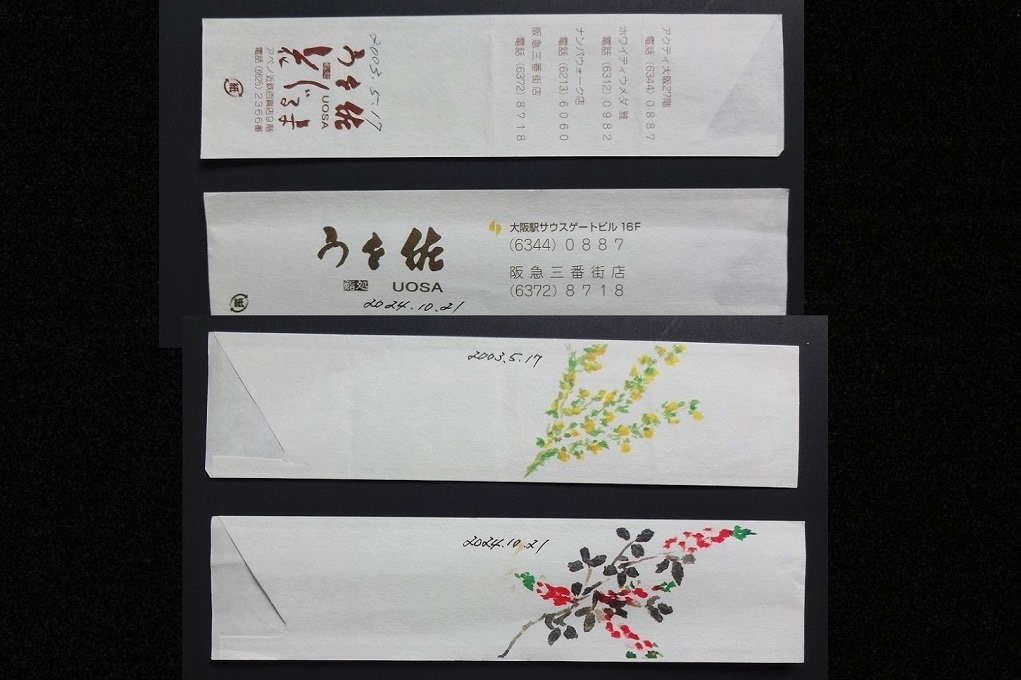 アクティ大阪27階
電話 (6344) 0887
ホワイティウメダ
電話 (6312) 0982
ナンバウォーク店
電話 (6213) 6060
阪急三番街店
電話 (6372) 8718
2003.5.17
うを佐
鮨処 UOSA
花ぐるま
アベノ近鉄百貨店9階
電話 (6625) 2366番
紙
うを佐
鮨処 UOSA
2024.10.21
大阪駅サウスゲートビル 16F
(6344) 0887
阪急三番街店
(6372) 8718
紙
2003.5.17
2024.10.21